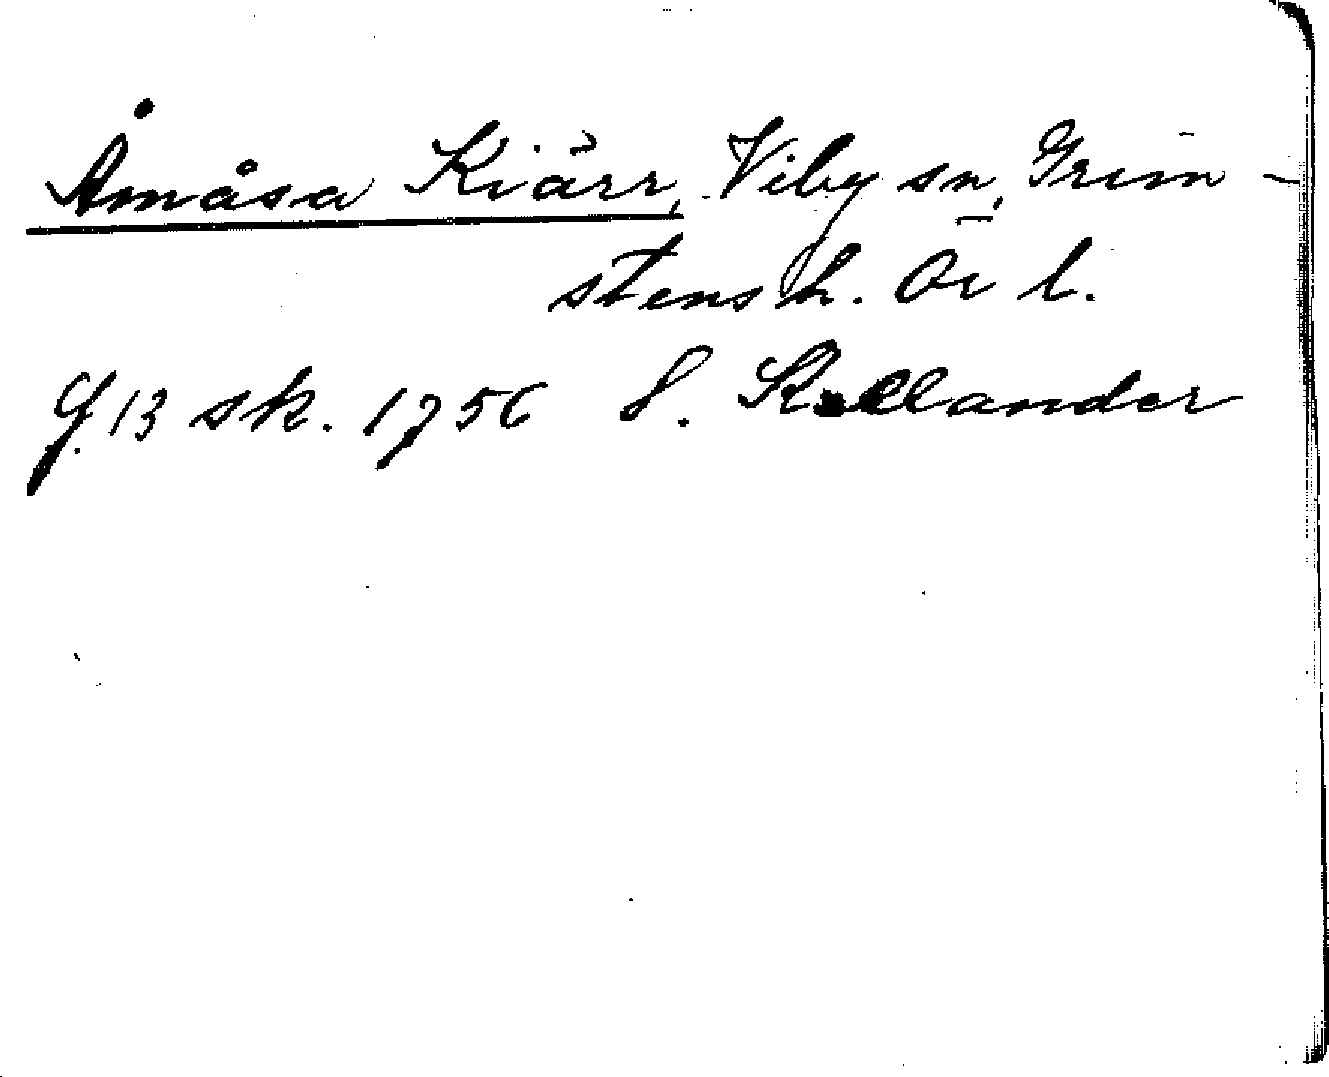 Åmåsa Kiärr, Viby sn, Grim-
stens h. Ör l.
G. 13 sk. 1756 S. Kallander